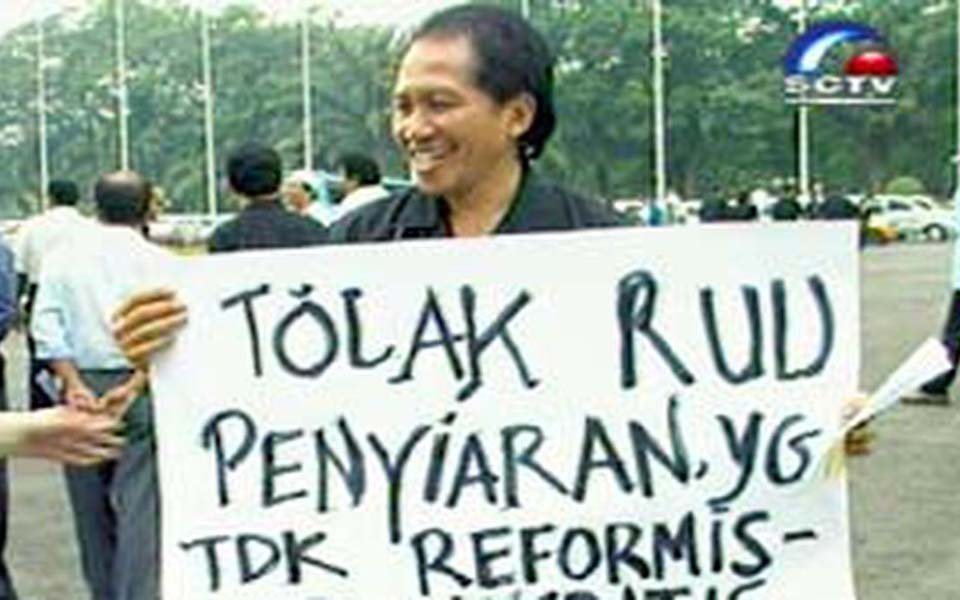 SCTV
TOLAK RUU
PENYIARAN, YG
TDK REFORMIS-